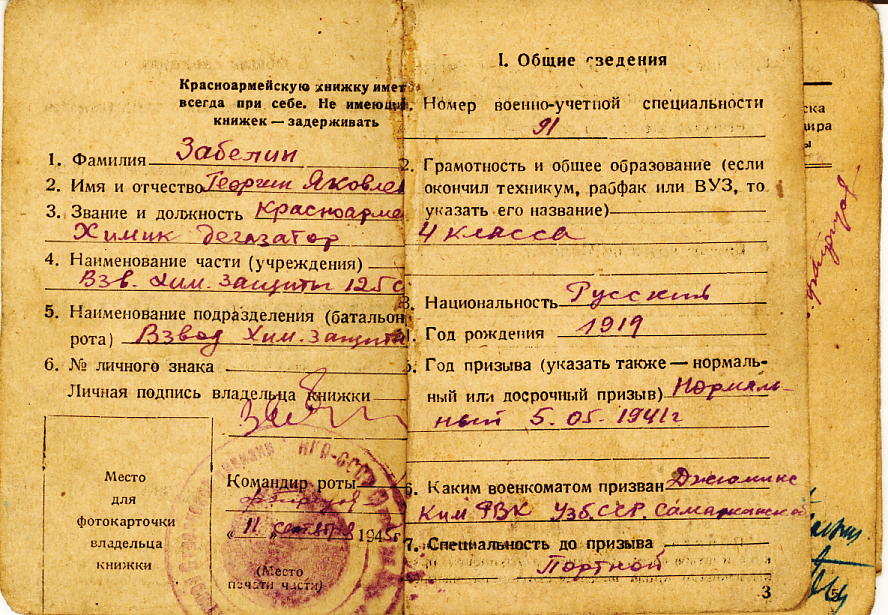 Красноармейскую книжку имет
всегда при себе. Не имеющи
книжек — задерживать
1. Фамилия Забелин
2. Имя и отчество Георгии Яковле
3. Звание и должность Красноарме
Химик дегазатор
4. Наименование части (учреждения)
Взв. Хим. защиты 125 с
5. Наименование подразделения (батальон
рота) Взвод Хим. защиты
6. № личного знака
Личная подпись владельца книжки
Место
для
фотокарточки
владельца
книжки
Командир роты
„ 11 „ сентября 1945г
(Место
печати части)
I. Общие сведения
1. Номер военно-учетной специальности
91
2. Грамотность и общее образование (если
окончил техникум, рабфак или ВУЗ, то
указать его название)
4 класса
3. Национальность Русский
4. Год рождения 1919
5. Год призыва (указать также — нормаль-
ный или досрочный призыв) Нормаль-
ный 5. 05. 1941г
6. Каким военкоматом призван Джамкинс
Ким РВК Узб.ССР. Самаркандской
7. Специальность до призыва
Портной
3
5